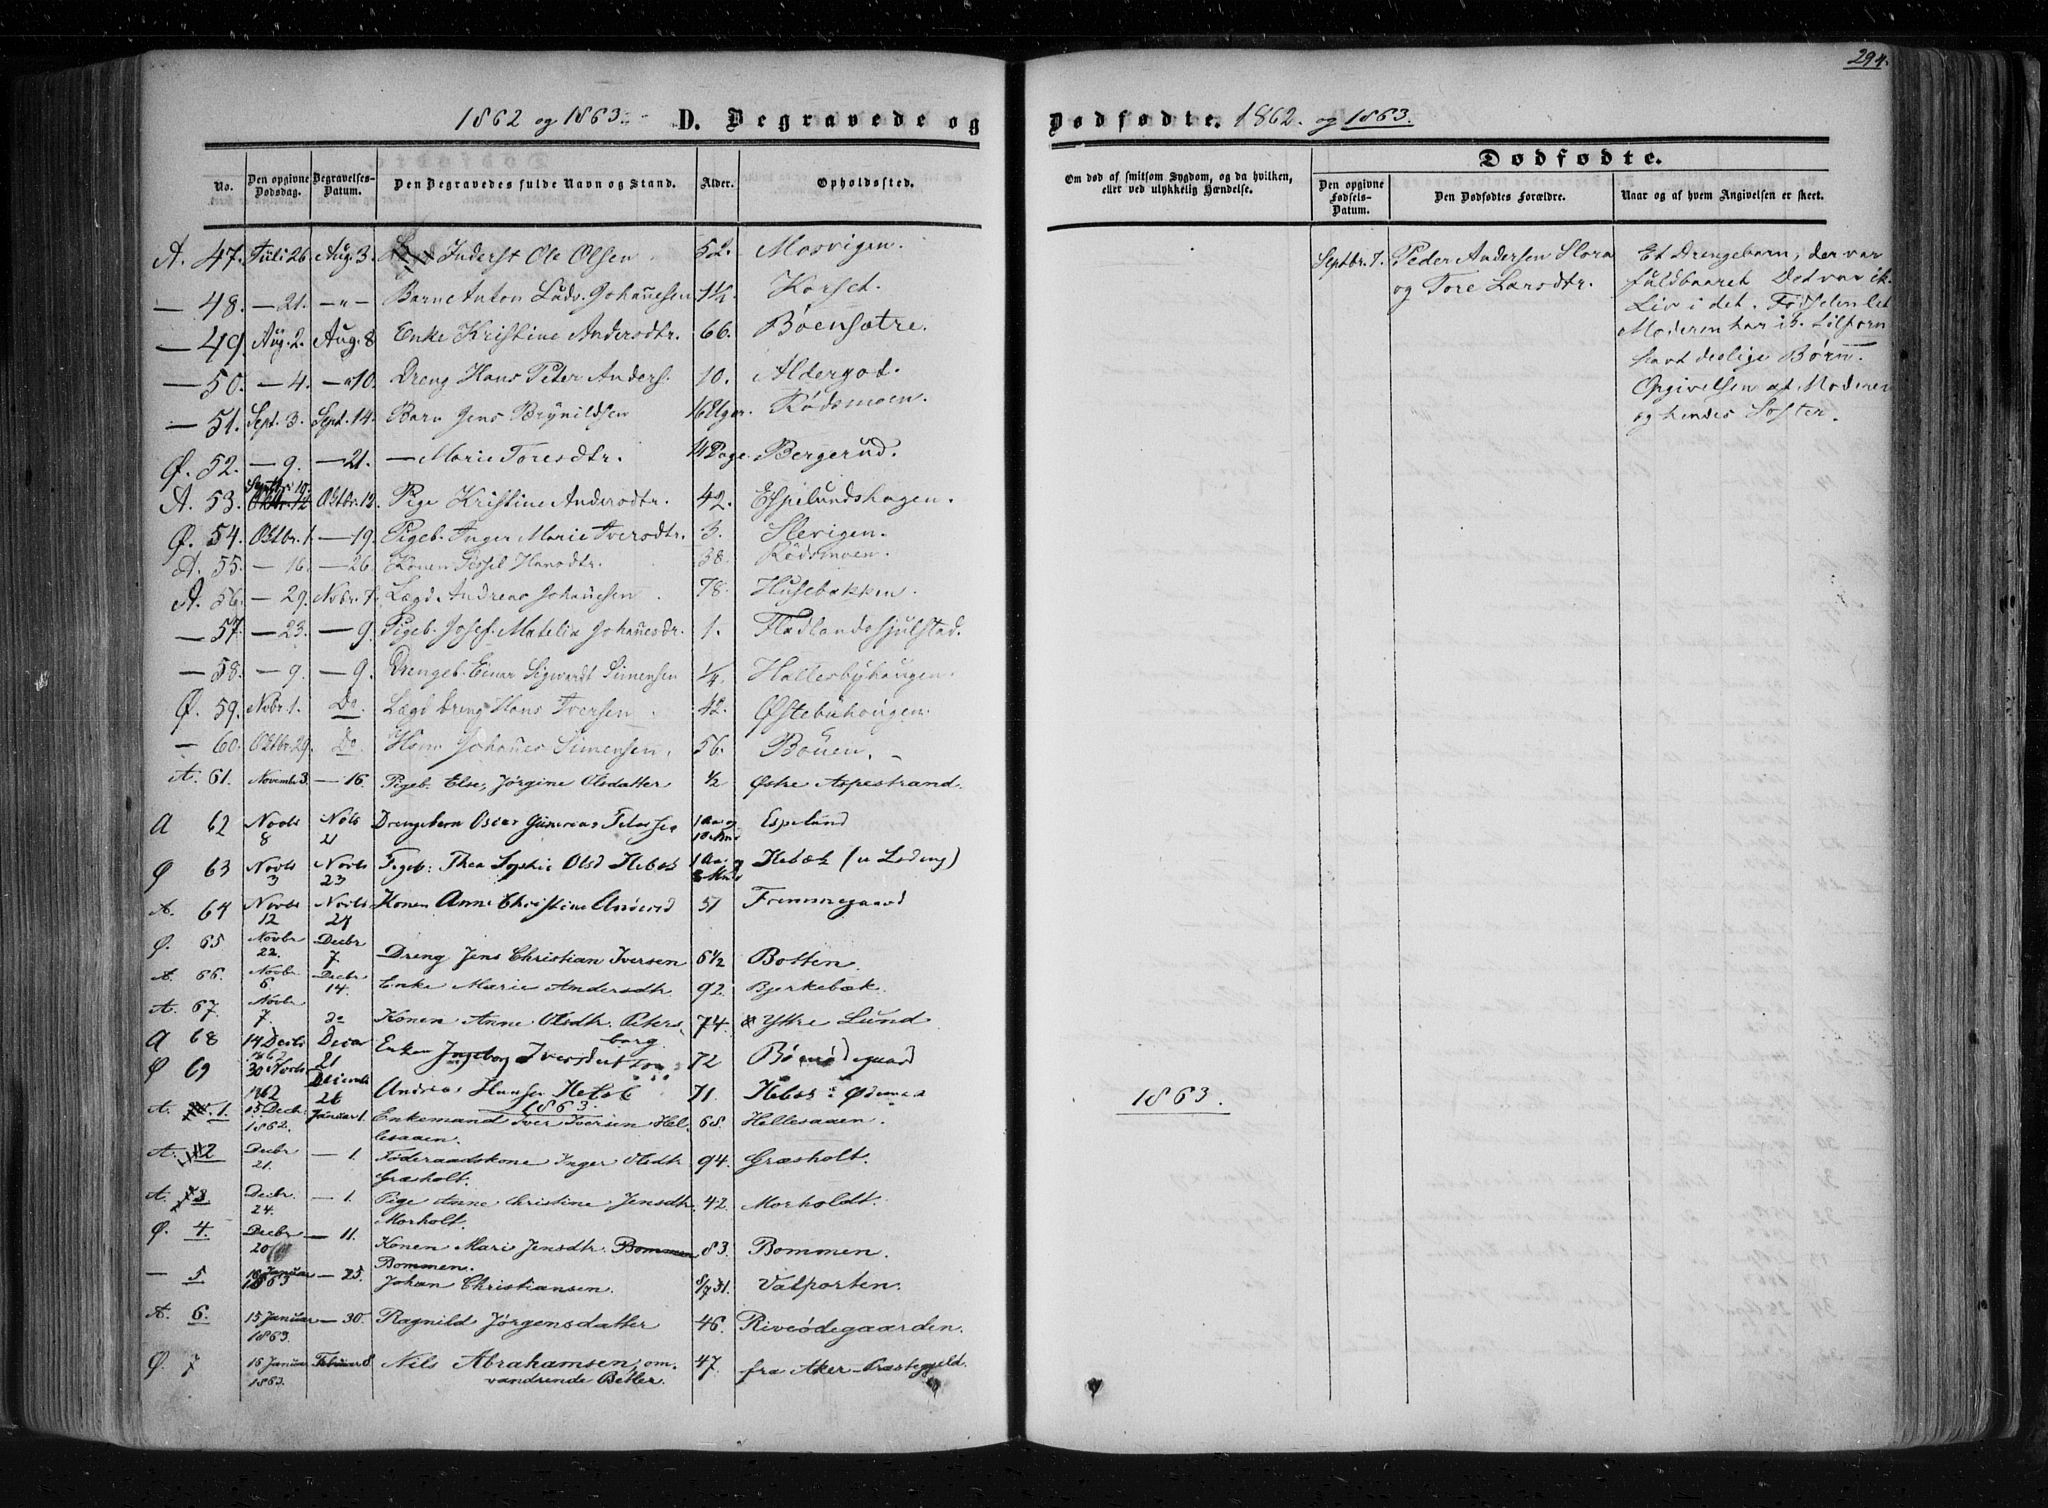 294.
1862 og 1863. D. Begravede og
Dødfødte. 1862. og 1863.
No. Den opgivne Dødsdag. Begravelses-Datum. Den Begravedes fulde Navn og Stand. Alder. Opholdssted.
Om død af smitsom Sygdom, og da hvilken, eller ved ulykkelig Hændelse.
Dødfødte.
Den opgivne Fødsels-Datum. Den Dødfødtes Forældre. Naar og af hvem Angivelsen er skeet.
A. 47. Juli 26. Aug. 3. Inderst Ole Olsen 52. Mosvigen.
— 48. — 21. — " — Barn Anton Ludv. Johannesen 1½ Korset.
— 49. Aug. 2. Aug. 8 Enke Kristine Andersdtr. 66. Bøensætre.
— 50. — 4. — " 10. Dreng Hans Peter Anders. 10. Aldergot.
— 51. Sept. 3. Sept. 14. Barn Jens Brynildsen 16 Uger. Rødsmoen.
Ø. 52. — 9. — 21. — Marie Toresdtr. 14 Dage. Bergerud.
A. 53. Septbr. 19. Oktbr. 12. Pige Kristine Andersdtr. 42. Espelundshagen.
Ø. 54. Oktbr. 1. — 19. Pigeb. Inger Marie Iversdtr. 3. Slevigen.
A. 55. — 16. — 26. Konen Sissel Hansdtr. 38. Rødsmoen.
A. 56. — 29. Novbr. 7. Lægd Andreas Johannesen 78. Husebakken.
— 57. — 23. — 9. Pigeb. Josef. Matelia Johannesdr. 1. Fladlandshjulstad.
— 58. — 9. — 9. Drengeb. Einar Sigwardt Simensen ¼. Hallesbyhaugen.
Ø. 59. Novbr. 1. Do. Lægd Dreng Hans Iversen 42. Østebyhaugen.
— 60. Oktbr. 29. Do. Hsm Johannes Simensen. 56. Bøuen.
A. 61. Novembr 3. — 16. Pigeb. Else, Jørgine Olsdatter ½ Østre Aspestrand.
A 62 Novbr 8 Novb 21 Drengebarn Oscar Gunerius 1 Aar og 10 Mnd Espelund
Ø 63 Novbr 3 Novbr 23 Pigeb: Thea Sophie Olsd Kebæk 1 Aar og 8 Mnd Kebæk (u Lødeng)
A. 64 Novbr 12 Novbr 27 Konen Anne Christine Andersd 51 Fremmegaard
Ø. 65 Novbr 22. Decbr 7 Dreng Jens Christian Iversen 6½ Botten.
A. 66. Novbr 6 Decbr 14. Enke Marie Andersdtr. 92. Bjerkebæk.
A. 67. Novbr. 7. do Konen Anne Olsdtr. Petersborg 74. Yttre Lund
A 68 14 Decbr 1862 Decbr 21 Enken Ingeborg Iversdatter 72 Bøensødegaard
Ø 69 30 Novbr 1862 Decembr 26 Andreas Hansen Kebæk 71. Kebæk i Ødemark
1863.
1863.
A. 1. 15 Decbr 1862. Januar 1. Enkemand Iver Iversen Hel-
lesaaen. 68. Hellesaaen.
A. 2 Decbr 21. — 1. Føderaadskone Inger Olsdtr
Græsholt. 94. Græsholt.
A. 3. Decbr. 24. — 1. Pige Anne Christine Jensdtr.
Morholt. 42. Morholdt.
Ø. 4. Decbr 20 — 11. Konen Mari Jensdtr. Bommen
Bommen. 83. Bommen.
— 5 18 Januar 1863 — 25. Johan Christiansen. 8/7 31. Valporten.
A. 6. 15 Januar 1863. — 30. Ragnild Jørgensdatter 46. Riveødegaarden.
Ø. 7 16 Januar 1863. Februar 8. Nils Abrahamsen, om-
vandrende Betler. 47. fra Aker Præstegjeld.
Septbr. 7. Peder Andersen Stora
og Tore Larsdtr.
Et Drengebarn, der var
fuldbaaret Det var ik.
Liv i det. Fødselen let
Moderen har ik. tilforn
havt deslige Børn.
Opgivelsen af Moderen
og hendes Søster.